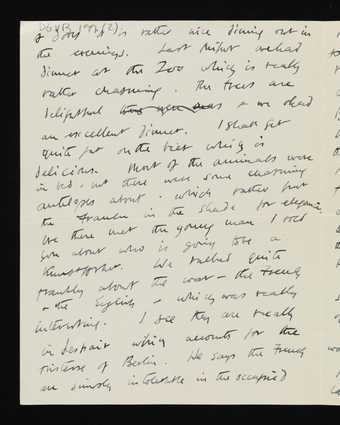 of you. It is rather nice dining out in
the evenings. Last night we had
dinner at the Zoo which is really
rather charming. The trees are
delightful & we had
an excellent dinner. I shall get
quite fat on the beer which is
delicious. Most of the animals were
in bed - but there were some charming
antelopes about - which rather put
the Frauen in the shade for elegance.
We there met the young man I told
you about who is going to be a
Kunstforscher. We talked quite
frankly about the war - the French
& the English - which was really
interesting. I see they are really
in despair which accounts for the
tristesse of Berlin. He says the French
are simply intolerable in the occupied